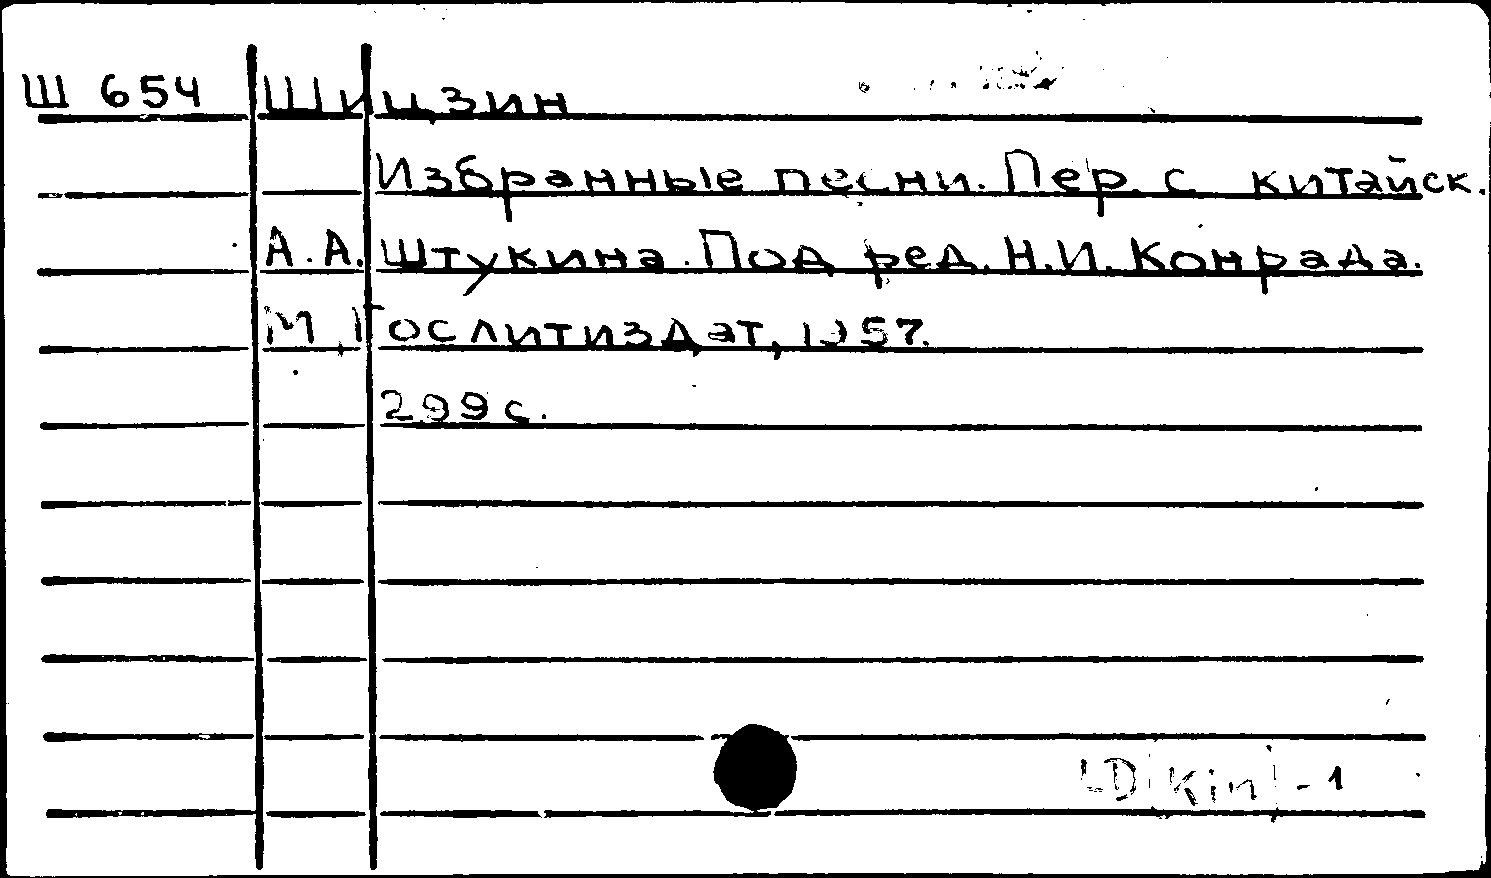 Ш 654 Шицзин
Избранные песни. Пер. с китайск.
А.А. Штукина. Под ред. Н.И. Конрада.
М, Гослитиздат, 1957.
299 с.
LD Kin - 1